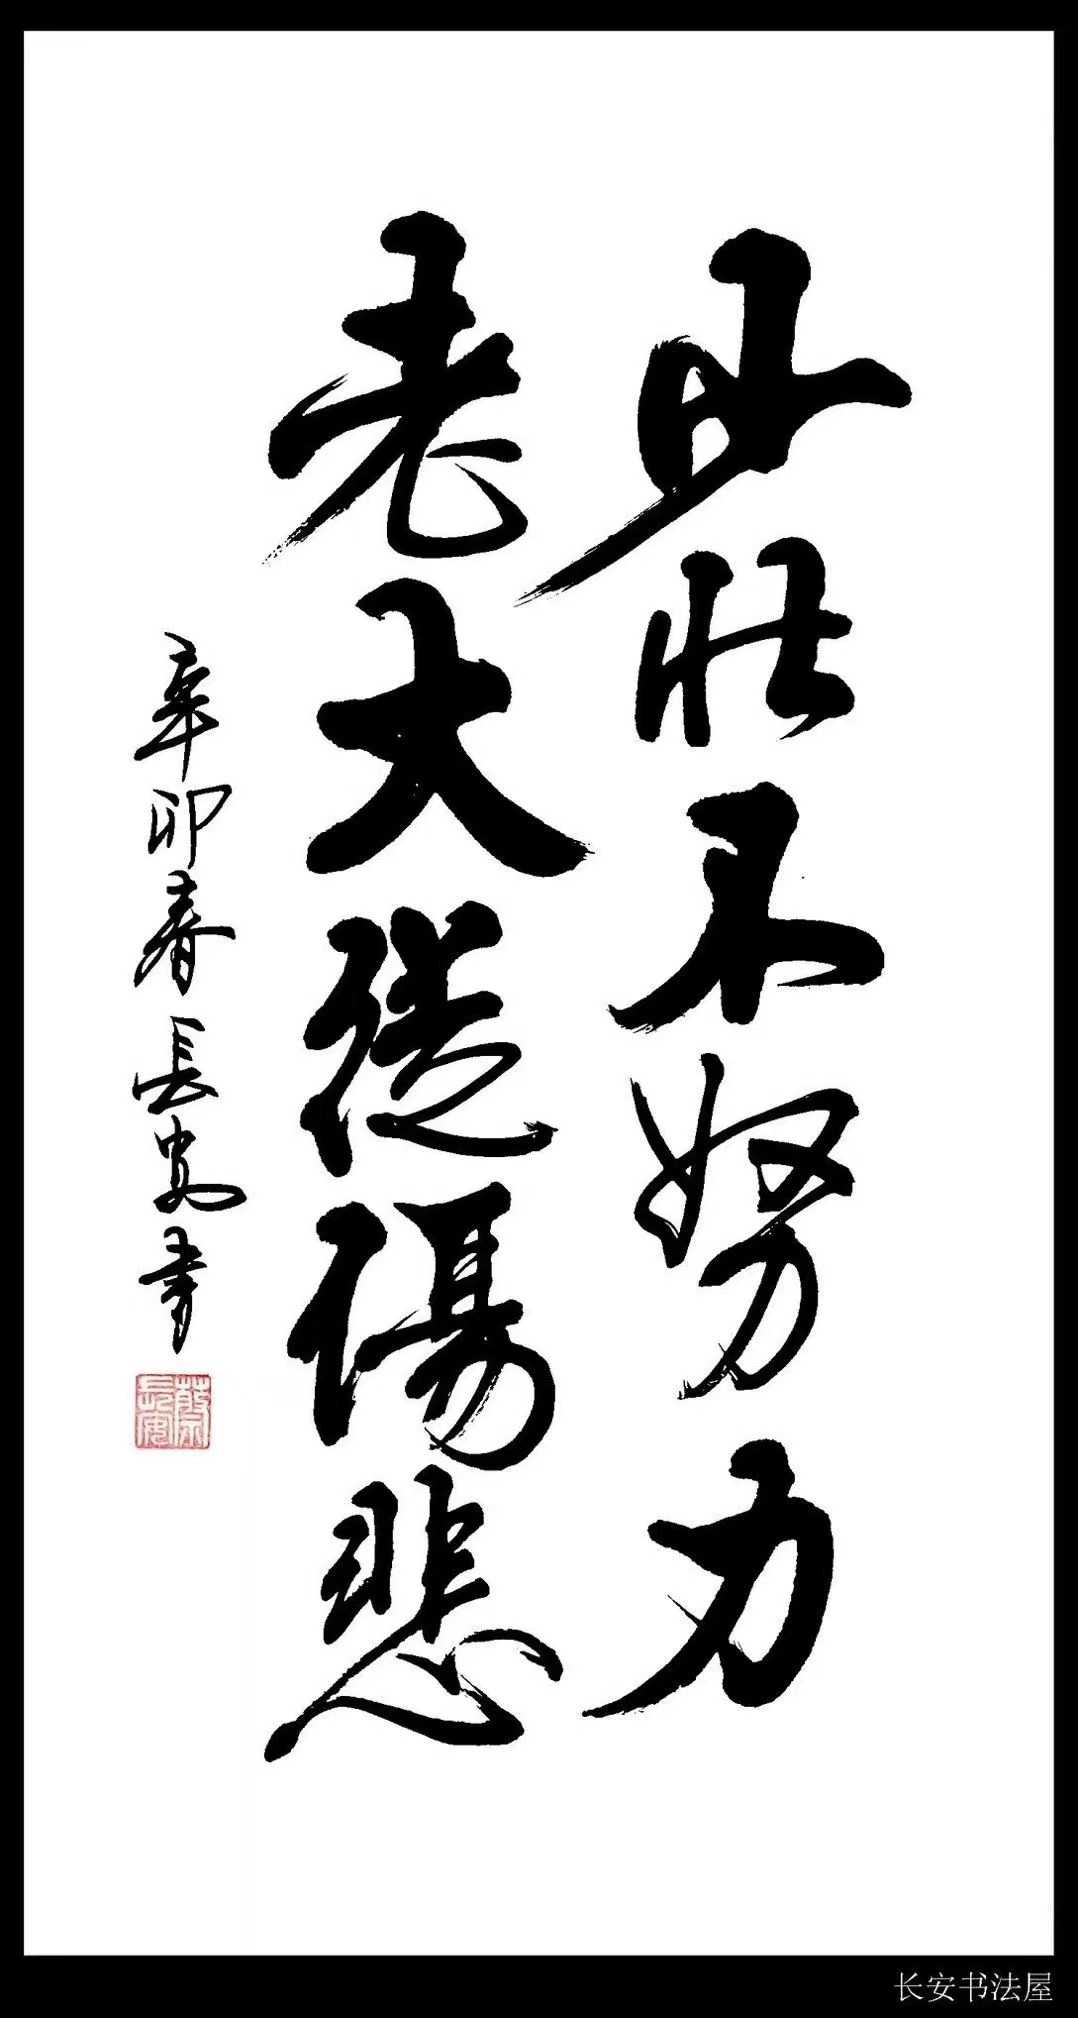 少壮不努力
老大徒傷悲
辛卯春長安書
蔡長安
长安书法屋